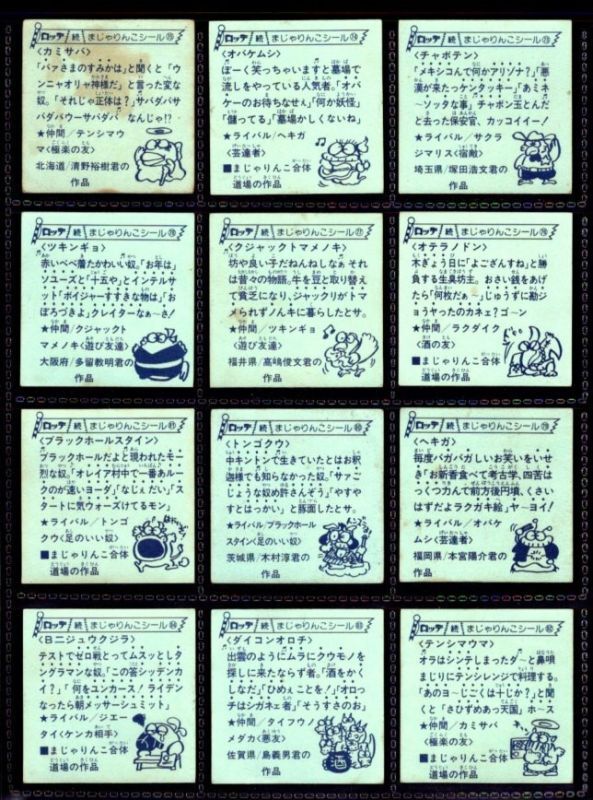 ロッテ 続 まじゃりんこシール㊄
〈カミサバ〉
「バァさまのすみかは」と聞くと「ウ
ンニャオリャ神様だ」と言った変な
奴。「それじゃ正体は?」サバダバサ
バダバウーサバダバ なんじゃ!?
★仲間/テンシマウ
マ〈極楽の友〉
北海道/清野裕樹君の
作品
ロッテ 続 まじゃりんこシール
〈オバケムシ〉
ぼーく笑っちゃいますと墓場で
流しをやっている人気者。「オバ
ケーのお待ちなせぇ」「何か妖怪」
「儲ってる」「墓場かしくないね」
★ライバル/ヘキガ
〈芸達者〉
■まじゃりんこ合体
道場の作品
ロッテ 続 まじゃりんこシール
〈チャボテン〉
「メキシコんで何かアリゾナ?」「悪
漢が来たっケンタッキー」「あミネ
ーソッタな事」チャボン玉とんだ
と去った保安官、カッコイイー!
★ライバル/サクラ
ジマリス〈宿敵〉
埼玉県/塚田浩文君の
作品
ロッテ 続 まじゃりんこシール
〈ツキンギョ〉
赤いべべ着たかわいい奴。「お年は」
ソユーズと「十五や」とインテルサ
ット「ボイジャーすすきな物は」「お
ぼろづきよ」クレイターなぁ~さ!
★仲間/クジャックト
マメノキ〈遊び友達〉
大阪府/多留教明君の
作品
ロッテ 続 まじゃりんこシール
〈クジャックトマメノキ〉
坊や良い子だねんねしなぁ それ
は昔々の物語。牛を豆と取り替え
て貧乏になり、ジャックリがトマ
メられずノんキに暮らしたとサ。
★仲間/ツキンギョ
〈遊び友達〉
福井県/高嶋俊文君の
作品
ロッテ 続 まじゃりんこシール
〈オテラノドン〉
木ぎょう日に「よござんすね」と勝
負する生臭坊主。おさい銭をあげ
たら「何枚だぁ~」じゅうずに勘ジ
ョウヤったのカネェ?ゴ~ン
★仲間/ラクダイク
〈酒の友〉
■まじゃりんこ合体
道場の作品
ロッテ 続 まじゃりんこシール
〈ブラックホールスタイン〉
ブラックホールだよと現われたモー
烈な奴。「オレイア村中で一番あルー
クのが遠いヨーダ」「なじぇだい」「ス
タートに気ウォーズけてるモん」
★ライバル/トンゴ
クウ〈足のいい奴〉
■まじゃりんこ合体
道場の作品
ロッテ 続 まじゃりんこシール
〈トンゴクウ〉
ロキントンで生きていたとはお釈
迦様でも知らなかった奴。「サァご
じょうな奴め許さんぞう」「やすや
すとはっかい」と豚面したとサ。
★ライバル/ブラックホール
スタイン〈足のいい奴〉
茨城県/木村淳君の
作品
ロッテ 続 まじゃりんこシール
〈ヘキガ〉
毎度バガバガしいお笑いをいせ
き「お新香食べて考古学、四苦は
っくつ力んで前方後円墳、くさい
はずだよラクガキ絵」ヤ~ヨイ!
★ライバル/オバケ
ムシ〈芸達者〉
福岡県/本宮陽介君の
作品
ロッテ 続 まじゃりんこシール
〈B二ジュウクジラ〉
テストでゼロ戦とってムスッとしタ
ングラマンな奴。「この答シッデンカ
イ?」「何をユンカース!ライデン
なったら朝メッサーシュミット」
★ライバル/ジエー
タイ〈ケンカ相手〉
■まじゃりんこ合体
道場の作品
ロッテ 続 まじゃりんこシール
〈ダイコンオロチ〉
出雲のようにムラにクウモノを
探しに来たならず者。「酒をかく
しなだ」「ひめぇことを!」「オロッ
チはシガネェ者」「そうすさのお」
★仲間/タイフウノ
メダカ〈悪友〉
佐賀県/島義男君の
作品
ロッテ 続 まじゃりんこシール
〈テンシマウマ〉
オラはシンテしまったダ~と鼻唄
まじりにテンシレンジで料理する。
「あのヨ~じごくは十じか?」と聞
くと「さひずめあっ天国」ホ~ス
★仲間/カミサバ
〈極楽の友〉
■まじゃりんこ合体
道場の作品
酒